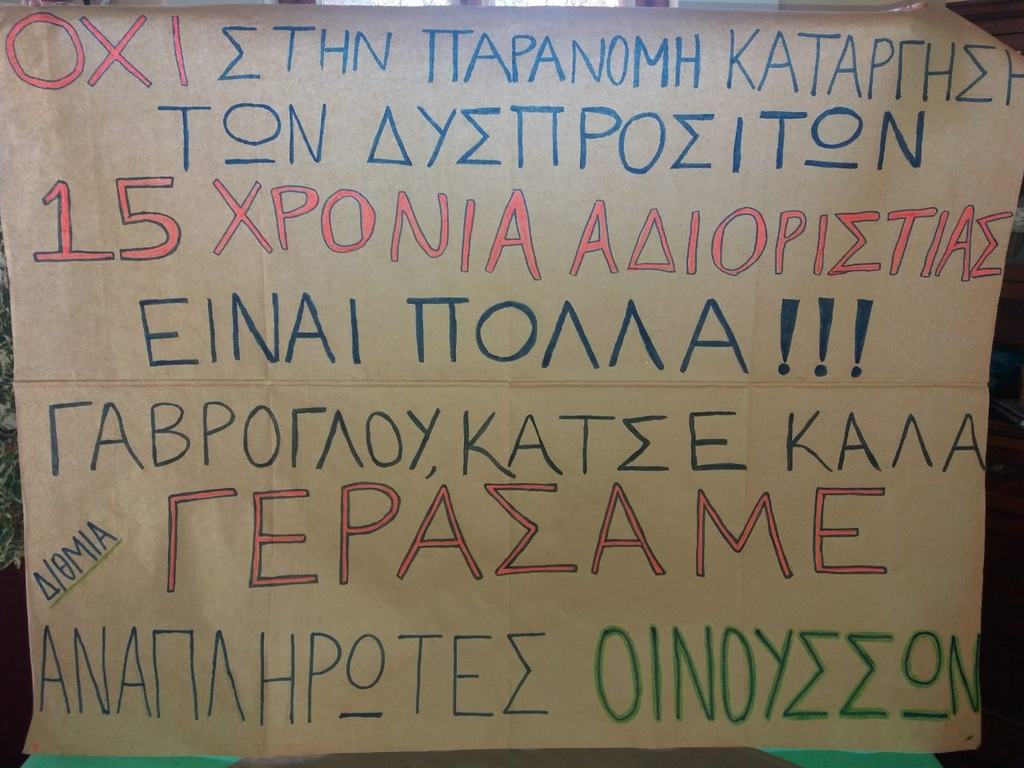 ΟΧΙ ΣΤΗΝ ΠΑΡΑΝΟΜΗ ΚΑΤΑΡΓΗΣΗ
ΤΩΝ ΔΥΣΠΡΟΣΙΤΩΝ
15 ΧΡΟΝΙΑ ΑΔΙΟΡΙΣΤΙΑΣ
ΕΙΝΑΙ ΠΟΛΛΑ!!!
ΓΑΒΡΟΓΛΟΥ, ΚΑΤΣΕ ΚΑΛΑ
ΓΕΡΑΣΑΜΕ
ΔΙΘΜΙΑ
ΑΝΑΠΛΗΡΩΤΕΣ ΟΙΝΟΥΣΣΩΝ